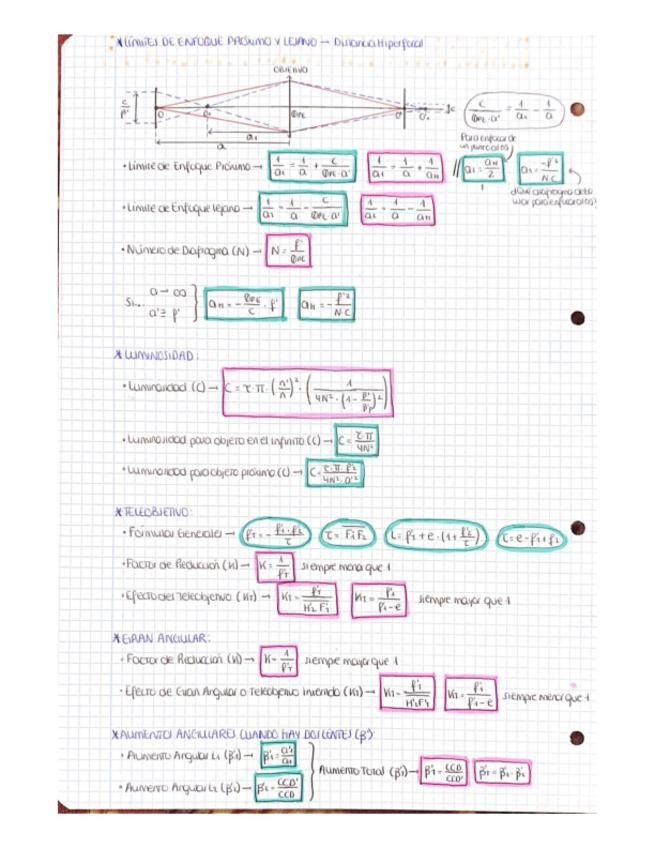 * LÍMITES DE ENFOQUE PRÓXIMO Y LEJANO → Distancia Hiperfocal
OBJETIVO
c/β' O O₁ ΦPE O' O'₁ c
a₁
a
c/(ΦPE·a') = 1/a₁ - 1/a
Para enfocar de un punto al ∞
· Límite de Enfoque Próximo → 1/a₁ = 1/a + c/(ΦPE·a') 1/a₁ = 1/a + 1/aH // a₁ = aH/2 aH = -f'²/N·C
· Límite de Enfoque Lejano → 1/a₂ = 1/a - c/(ΦPE·a') 1/a₂ = 1/a - 1/aH
· Número de Diafragma (N) → N = f'/ΦPE
Si... a → ∞ a' ≅ f' } aH = -ΦPE/c · f' aH = -f'²/N·C
* LUMINOSIDAD:
· Luminosidad (C) → C = τ·π·(n'/n)²·(1/(4N²·(1-β'/β'p)²))
· Luminosidad para objeto en el infinito (C) → C = τ·π/4N²
· Luminosidad para objeto próximo (C) → C = τ·π·f'²/4N²·a'²
* TELEOBJETIVO:
· Fórmulas Generales → f'T = -f'₁·f'₂/τ τ = F'₁F₂ L = f'₁ + e·(1+f'₂/τ) τ = e - f'₁ + f₂
· Factor de Reducción (K) → K = 1/f'T siempre menor que 1
· Efecto del Teleobjetivo (KT) → KT = f'T/H'₂F'₂ KT = f'₁/f'₁-e siempre mayor que 1
* GRAN ANGULAR:
· Factor de Reducción (K) → K = 1/f'T siempre mayor que 1
· Efecto de Gran Angular o Teleobjetivo invertido (KT) → KT = f'T/H'F' KT = f'₁/f'₁-e siempre menor que 1
* AUMENTOS ANGULARES CUANDO HAY DOS LENTES (β'):
· Aumento Angular L₁ (β'₁) → β'₁ = a'₁/a₁
· Aumento Angular L₂ (β'₂) → β'₂ = CCD'/CCD
} Aumento Total (β'T) → β'T = CCD/CCD' β'T = β'₁·β'₂